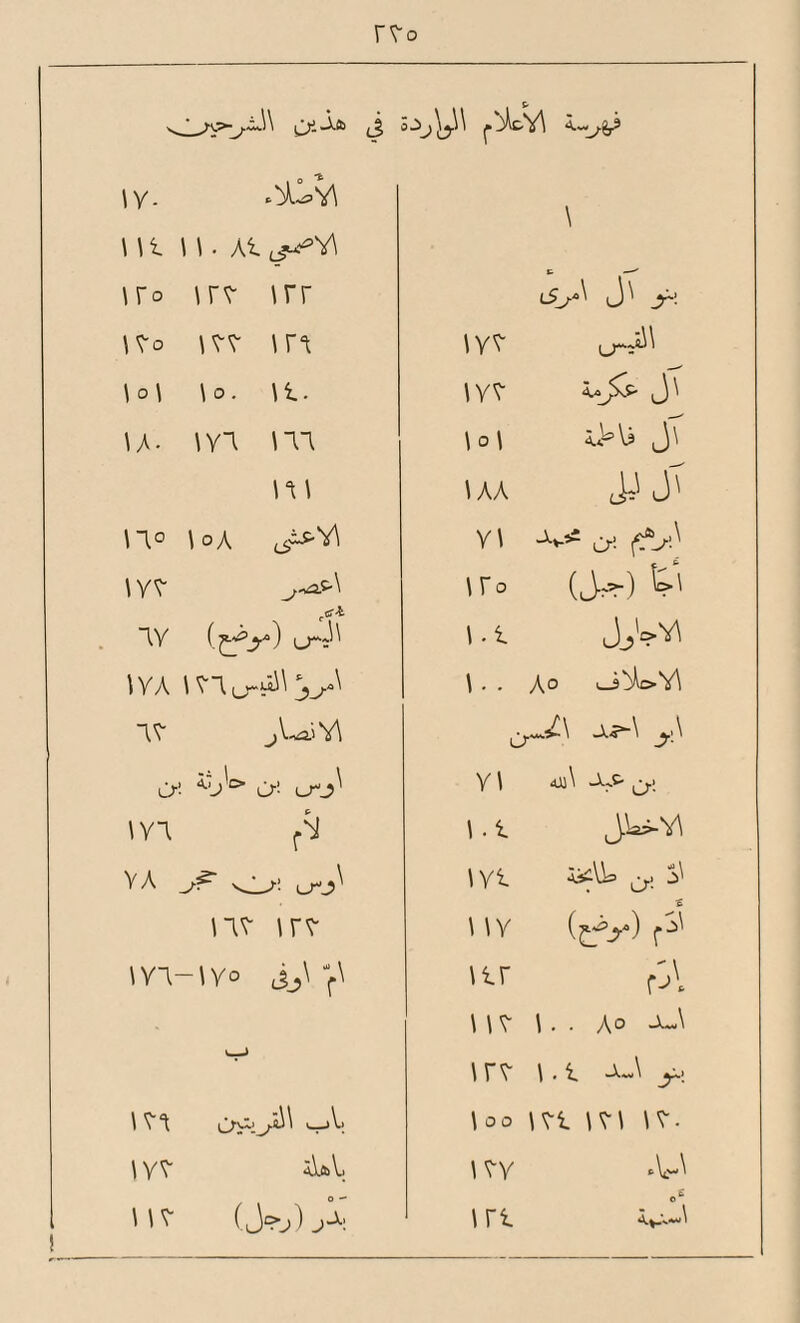 ٢٣٥
فهرسة الأعلام الواردة في هذين الشرحين
ا
بنو آل امرئ
القيس ١٧٣
آل عكرمة ١٧٣
آل فاطمة ١٥١
آل ليل ١٨٨
ابرهيم بن محمد ٧١
أجأ (جبل) ١٢٥
الاجاول ١٠٤
الاحلاف ٨٥ ١٠٠
ابو احمد الحسن
بن عبد الله ٧١
الاخطل ١٠٤
ادّ بن طابخة ١٧٤
أدم (موضع) ١١٧
إرم ١٤٢
اسد ٨٥ ١٠٠ ١١٣
بنو اسد ١٠٤ ١٢٣
١٣٠ ١٣١ ١٣٤ ١٥٥
اسماء ١٣٧
أسنمة ١٢٤
الأصلاء ١٧٠
الاصمعي ٨٤ ١١٠ ١١٤
١٢٢ ١٢٣ ١٢٥
١٢٩ ١٣٣ ١٣٥
١٤٠ ١٥٠ ١٥١
١٦٦ ١٧٦ ١٨٠
١٩١
الاعشى ١٥٨ ١٦٥
اعصر ١٧٣
(موضع) ٦٧
امرؤ القيس ١٣٦ ١٧٨
الانصار ٦٣
اوس بن حارثة بن
لأم ١٧٦
اوس بن حجر ٧٨
١٢٣ ١٦٣
امّ اوفى ١٧٥-١٧٦
ب
باب القريتين ١٣٩
باهلة ١٧٣
بدر (رجل) ١١٣